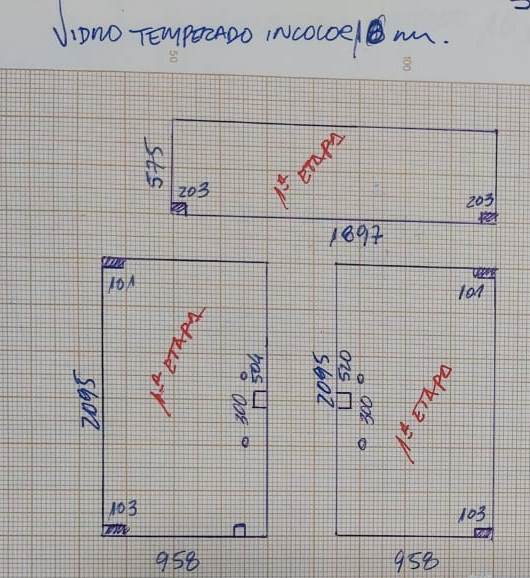 VIDRO TEMPERADO INCOLOR 8 mm.
50
100
575
1ª ETAPA
203
203
1897
101
101
1ª ETAPA
504
2095
520
2095
300
300
1ª ETAPA
103
103
958
958